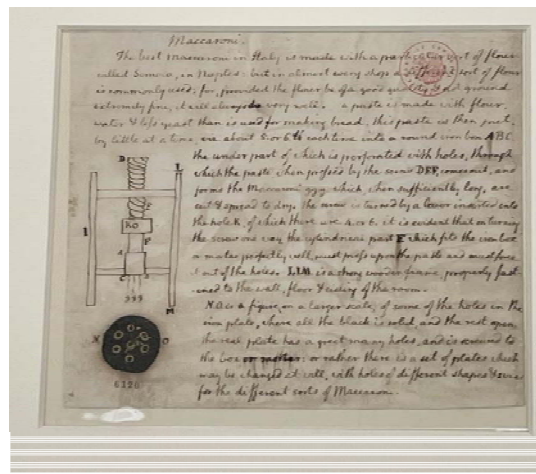 Maccaroni.
The best maccaroni in Italy is made with a particular sort of flour
called Semola, in Naples: but in almost every shop a different sort of flour
is commonly used; for, provided the flour be of a good quality, & not ground
extremely fine, it will always do very well. a paste is made with flour,
water & less yeast than is used for making bread. this paste is then put,
by little at a time, viz. about 5. or 6. ℔ each time into a round iron box ABC.
the under part of which is perforated with holes, through
which the paste, when pressed by the screw DEF, comes out, and
forms the Maccaroni ggg which, when sufficiently long, are
cut & spread to dry. the screw is turned by a lever inserted into
the hole K, of which there are 4. or 6. it is evident that on turning
the screw one way, the cylindrical part F. which fits the iron box
or mortar perfectly well, must press upon the paste and must force
it out of the holes. LLM. is a strong wooden frame, properly fast-
ened to the wall, floor & cieling of the room.
N.O. is a figure, on a larger scale, of some of the holes in the
iron plate, where all the black is solid, and the rest open.
the real plate has a great many holes, and is screwed to
the box or mortar: or rather there is a set of plates which
may be changed at will, with holes of different shapes & sizes
for the different sorts of Maccaroni.
D
L
I
KO
F
A
C
B
ggg
M
N
O
6126